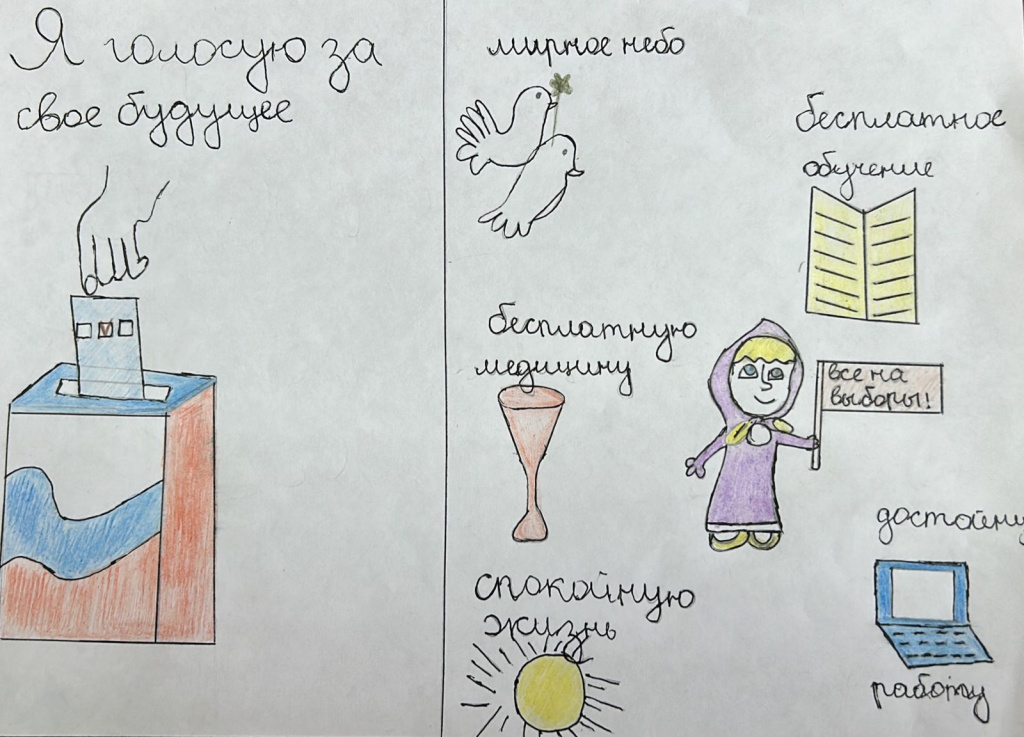 Я голосую за
свое будущее
мирное небо
бесплатное
обучение
бесплатную
медицину
все на
выборы!
спокойную
жизнь
достойну
работу